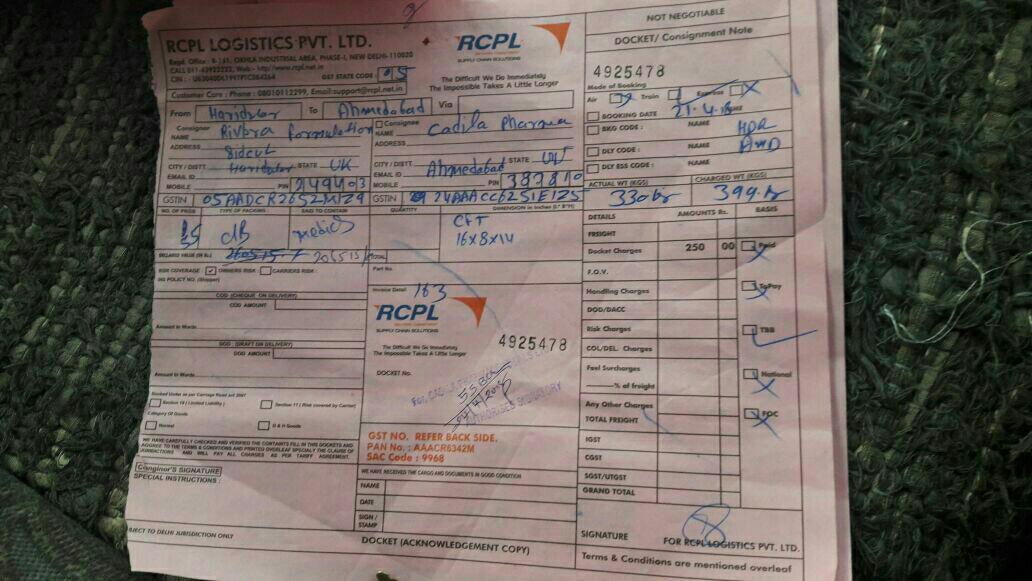 RCPL LOGISTICS PVT. LTD.
Regd. Office : B-161, OKHLA INDUSTRIAL AREA, PHASE-I, NEW DELHI-110020
GST STATE CODE : 05
Customer Care : Phone : 08010112299, Email:support@rcpl.net.in
RCPL
SUPPLY CHAIN SOLUTIONS
The Difficult We Do Immediately
The Impossible Takes A Little Longer
NOT NEGOTIABLE
DOCKET/ Consignment Note
4925478
Mode of Booking
Air Train Express
BOOKING DATE 21-4-18
BKG CODE : NAME HDR
DLY CODE : NAME AMD
DLY ESS CODE : NAME
From Haridwar To Ahmedabad Via
Consignor
NAME formulation
ADDRESS Sidcul
CITY / DISTT Haridwar STATE UK
EMAIL ID
MOBILE PIN 249403
Consignee
NAME Cadila Pharma
ADDRESS
CITY / DISTT Ahmedabad STATE
EMAIL ID
MOBILE PIN 382810
GSTIN
GSTIN
ACTUAL WT (KGS) 330
CHARGED WT (KGS) 399
NO. OF PKGS
TYPE OF PACKING
SAID TO CONTAIN
QUANTITY
DIMENSION in Inches (L*B*H)
15
CFT
16x8x14
DECLARED VALUE (IN Rs.)
TOTAL
RISK COVERAGE : OWNERS RISK CARRIERS RISK :
INS POLICY NO. (Shipper)
Part No.
Invoice Detail 163
COD (CHEQUE ON DELIVERY)
COD AMOUNT
Amount in Words
DOD : (DRAFT ON DELIVERY)
DOD AMOUNT
Amount in Words
RCPL
SUPPLY CHAIN SOLUTIONS
The Difficult We Do Immediately
The Impossible Takes A Little Longer
4925478
DOCKET No.
AUTHORISED SIGNATORY
Booked Under as per Carriage Road Act 2007
Section 10 ( Limited Liability )
Section 11 ( Risk covered by Carrier)
Category Of Goods
Normal
D & H Goods
GST NO. REFER BACK SIDE.
PAN No. : AAACR6342M
SAC Code : 9968
WE HAVE CAREFULLY CHECKED AND VERIFIED THE CONTAINTS FILL IN THIS DOCKETS AND
AGGREE TO THE TERMS & CONDITIONS AND PRINTED OVERLEAF SPECIALLY THE CLAUSE OF
JURISDICTIONS AND WILL PAY ALL CHARGES AS PER TARIFF AGREEMENT.
Consginor'S SIGNATURE
SPECIAL INSTRUCTIONS :
WE HAVE RECEIVED THE CARGO AND DOCUMENTS IN GOOD CONDITION
NAME
DATE
SIGN /
STAMP
DETAILS AMOUNTS Rs. BASIS
FREIGHT
Docket Charges 250 00 Paid
F.O.V.
Handling Charges ToPay
DOD/DACC
Risk Charges TBB
COL/DEL. Charges
Fuel Surcharges National
% of freight
Any Other Charges FOC
TOTAL FREIGHT
IGST
CGST
SGST/UTGST
GRAND TOTAL
SIGNATURE FOR RCPL LOGISTICS PVT. LTD.
JECT TO DELHI JURISDICTION ONLY
DOCKET (ACKNOWLEDGEMENT COPY)
Terms & Conditions are mentioned overleaf